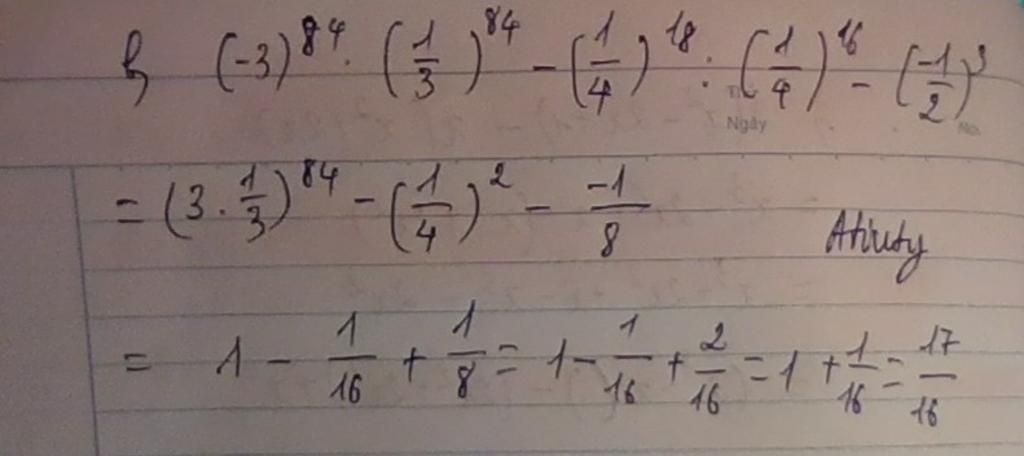 b, (-3)^84 . (1/3)^84 - (1/4)^18 : (1/4)^16 - (-1/2)^3
Ngày
= (3 . 1/3)^84 - (1/4)^2 - -1/8
= 1 - 1/16 + 1/8 = 1 - 1/16 + 2/16 = 1 + 1/16 = 17/16